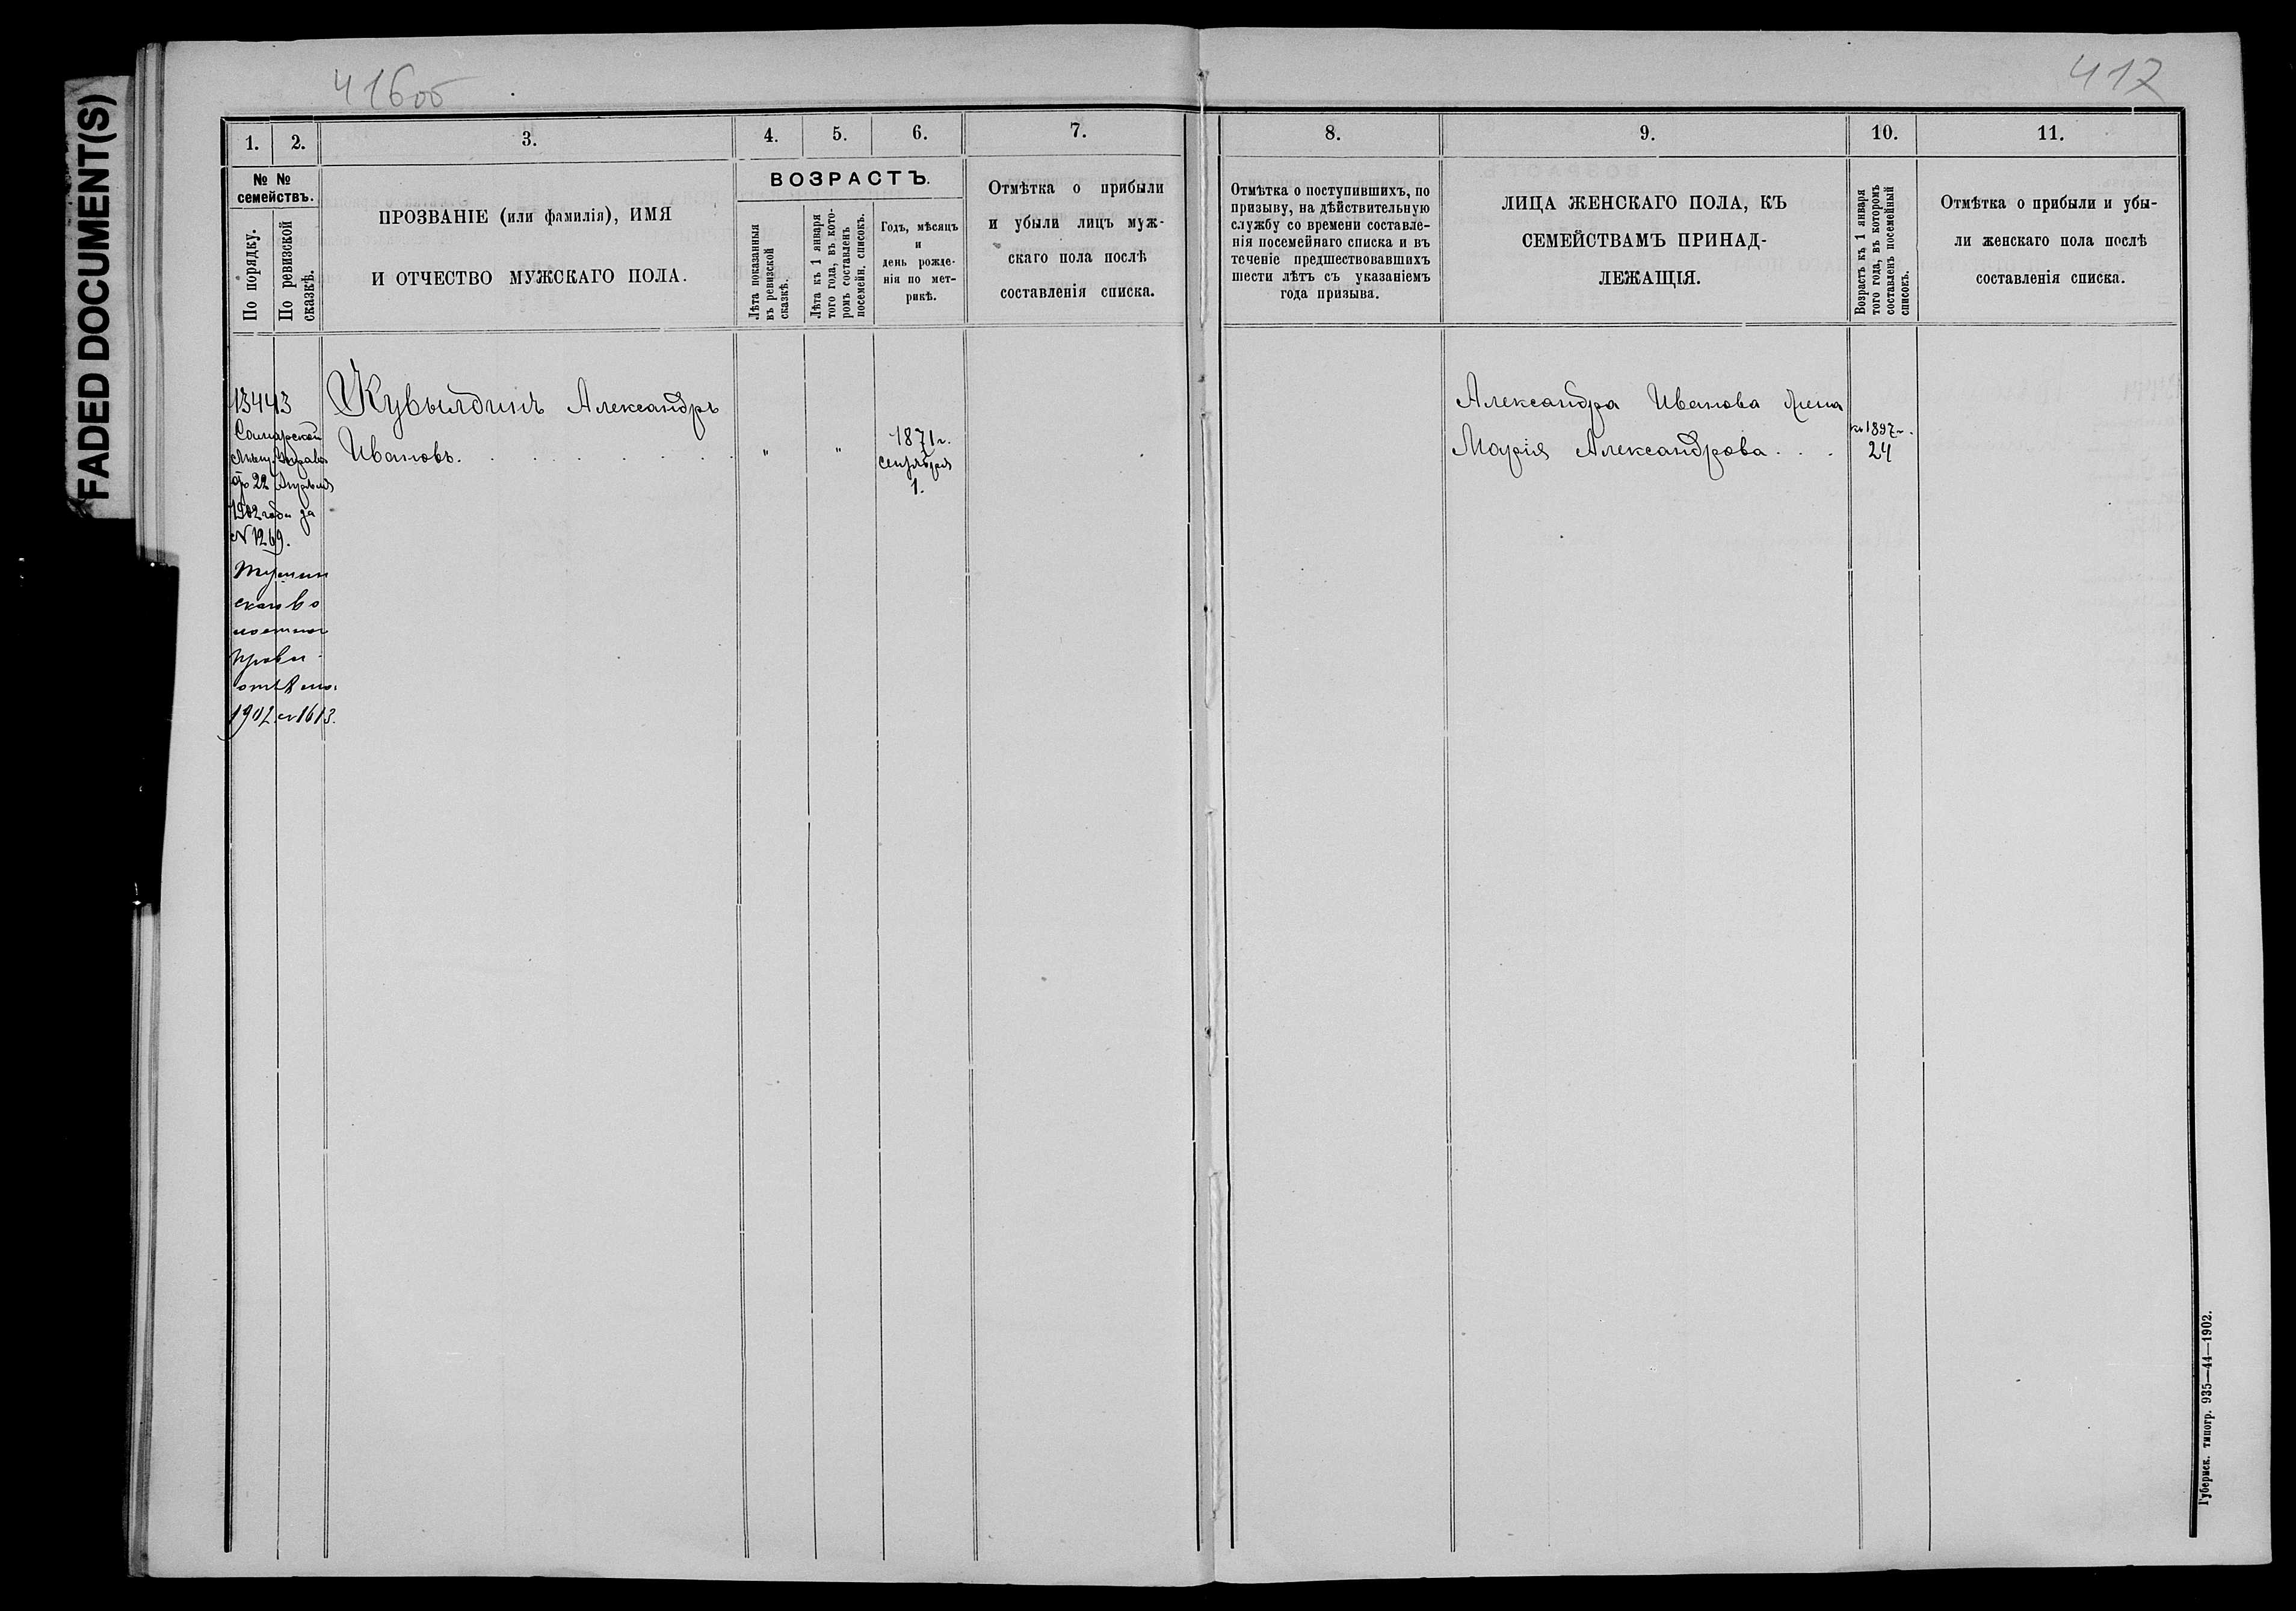 FADED DOCUMENT(S)
416об
417
1.
2.
3.
4.
5.
6.
7.
8.
9.
10.
11.
№ №
семействъ.
По порядку.
По ревизской
сказкѣ.
ПРОЗВАНІЕ (или фамилія), ИМЯ
И ОТЧЕСТВО МУЖСКАГО ПОЛА.
ВОЗРАСТЪ.
Лѣта показанныя
въ ревизской
сказкѣ.
Лѣта къ 1 января
того года, въ кото-
ромъ составленъ
посемейн. списокъ.
Годъ, мѣсяцъ
и
день рожде-
нія по мет-
рикѣ.
Отмѣтка о прибыли
и убыли лицъ муж-
скаго пола послѣ
составленія списка.
Отмѣтка о поступившихъ, по
призыву, на дѣйствительную
службу со времени составле-
нія посемейнаго списка и въ
теченіе предшествовавшихъ
шести лѣтъ съ указаніемъ
года призыва.
ЛИЦА ЖЕНСКАГО ПОЛА, КЪ
СЕМЕЙСТВАМЪ ПРИНАД-
ЛЕЖАЩІЯ.
Возрастъ къ 1 января
того года, въ которомъ
составленъ посемейный
списокъ.
Отмѣтка о прибыли и убы-
ли женскаго пола послѣ
составленія списка.
13443
Самарской
Мѣщ. Управы
22 Апрѣля
1902 года за
№ 1269.
1902 № 1613.
Кувылдинъ Александръ
Ивановъ.
" "
1871 г.
сентября
1.
Александра Иванова жена
Марія Александрова . . .
къ 1897 г.
24
Губернск. типогр. 935—44—1902.